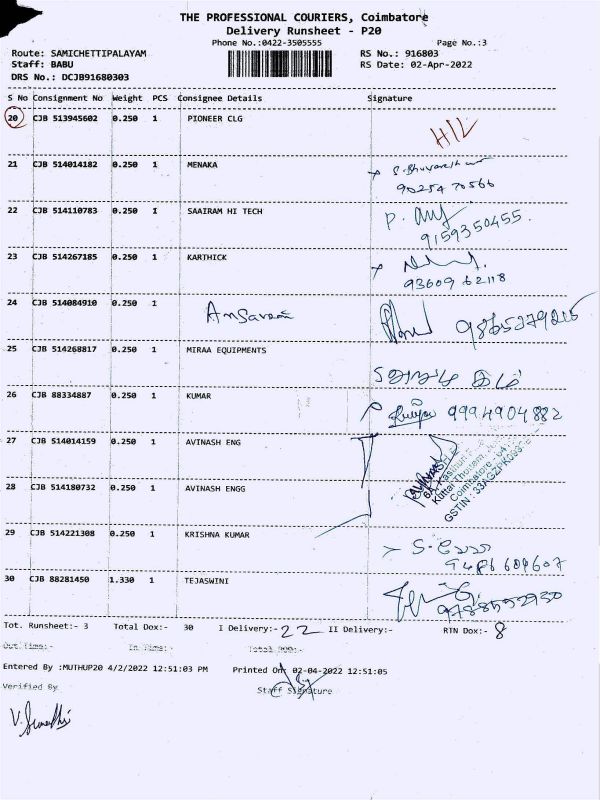 THE PROFESSIONAL COURIERS, Coimbatore
Delivery Runsheet - P20
Phone No.:0422-3505555
Page No.:3
Route: SAMICHETTIPALAYAM
RS No.: 916803
Staff: BABU
RS Date: 02-Apr-2022
DRS No.: DCJB91680303
S No Consignment No Weight PCS Consignee Details Signature
20 CJB 513945602 0.250 1 PIONEER CLG
21 CJB 514014182 0.250 1 MENAKA
90254 70566
22 CJB 514110783 0.250 1 SAAIRAM HI TECH
9159350455.
23 CJB 514267185 0.250 1 KARTHICK
93609 62118
24 CJB 514084910 0.250 1
25 CJB 514268817 0.250 1 MIRAA EQUIPMENTS
26 CJB 88334887 0.250 1 KUMAR 9994904882
27 CJB 514014159 0.250 1 AVINASH ENG
28 CJB 514180732 0.250 1 AVINASH ENGG
29 CJB 514221308 0.250 1 KRISHNA KUMAR
30 CJB 88281450 1.330 1 TEJASWINI
Tot. Runsheet:- 3 Total Dox:- 30 I Delivery:- 22 II Delivery:- RTN Dox:- 8
Out Time:- In Time:- Total POD:-
Entered By :MUTHUP20 4/2/2022 12:51:03 PM Printed On: 02-04-2022 12:51:05
Verified By
Staff Signature